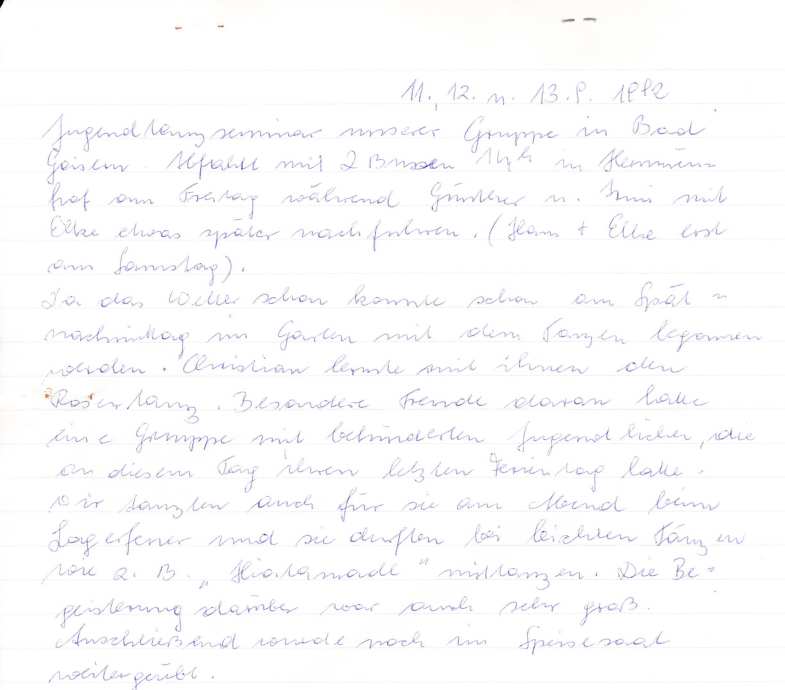 11., 12. u. 13.9. 1992
Jugendtanzseminar unserer Gruppe in Bad
Goisern. Abfahrt mit 2 Bussen 14h in
hof am Freitag während Günther u. mit
Elke etwas später nachfuhren. (Hans + Elke erst
am Samstag).
Da das Wetter schön konnte schon am Spät=
nachmittag im Garten mit dem Tanzen begonnen
werden. Christian lernte mit ihnen den
Rosentanz. Besondere Freude daran hatte
eine Gruppe mit behinderten Jugendlichen, die
an diesem Tag ihren letzten Ferientag hatte.
Wir tanzten auch für sie am Abend beim
Lagerfeuer und sie durften bei leichten Tänzen
wie z. B. „Hiatamadl“ mittanzen. Die Be=
geisterung darüber war auch sehr groß.
Anschließend wurde noch im Speisesaal
weitergeübt.